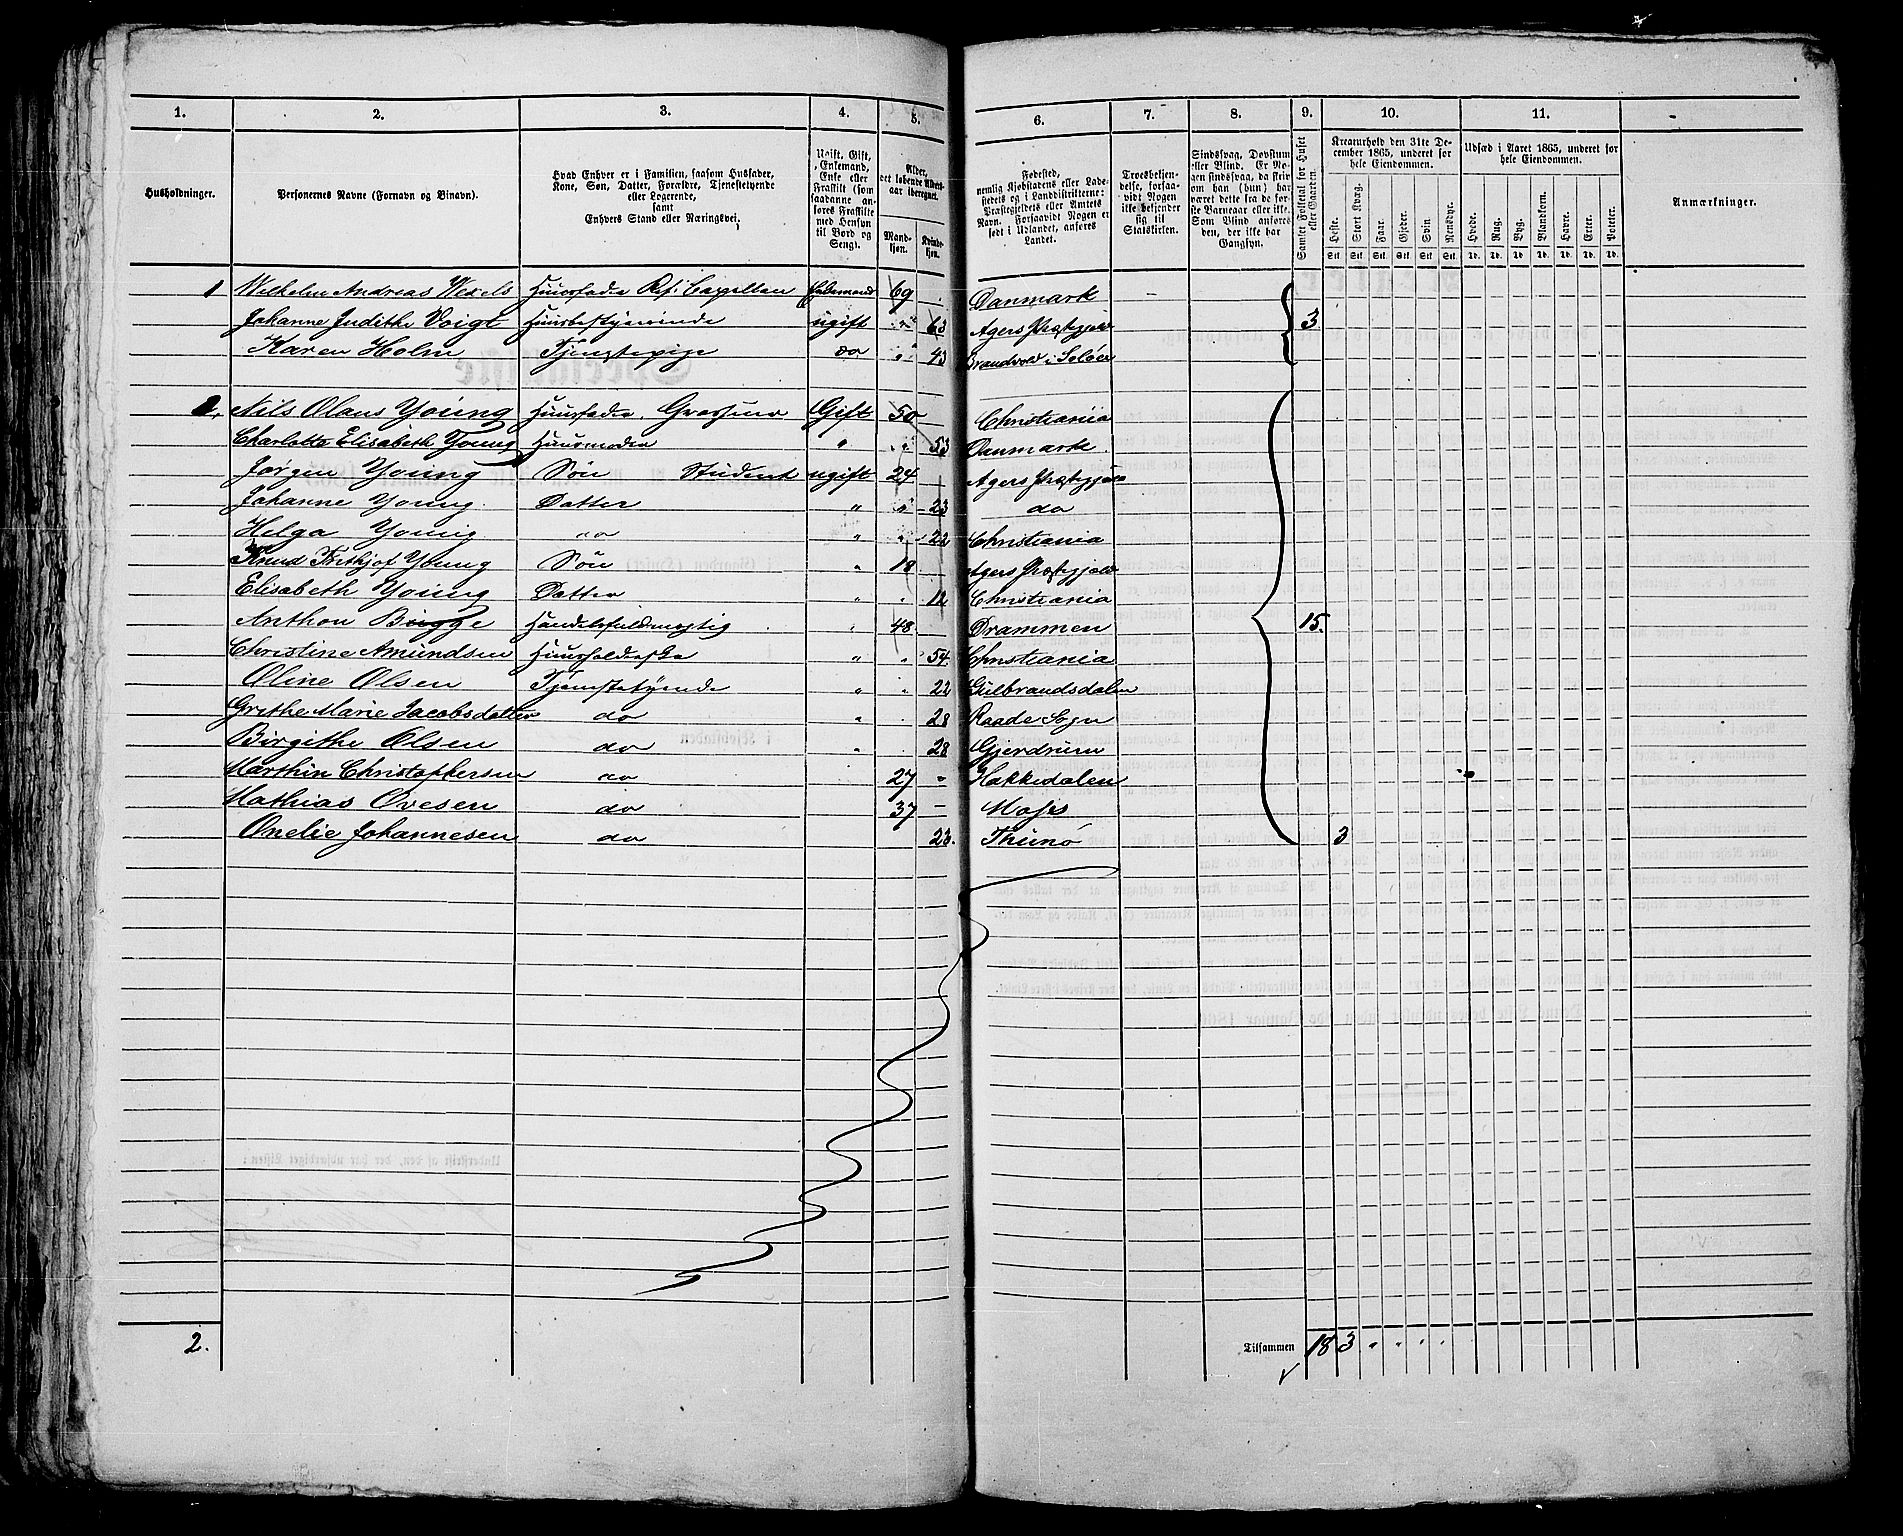 1. 2. 3. 4. 5. 6. 7. 8. 9. 10. 11.
Husholdninger.
Personernes Navne (Fornavn og Binavn).
Hvad Enhver er i Familien, saasom Husfader,
Kone, Søn, Datter, Forældre, Tjenestetyende
eller Logerende,
samt
Enhvers Stand eller Næringsvei.
Ugift, Gift,
Enkemand,
Enke eller
Fraskilt (som
saadanne an-
føres Fraskilte
med Hensyn
til Bord og
Seng).
Alder,
det løbende Alders-
aar iberegnet.
Mand-
kjøn.
Kvinde-
kjøn.
Fødested,
nemlig Kjøbstadens eller Lade-
stedets og i Landdistrikterne:
Præstegjeldets eller Amtets
Navn. Forsaavidt Nogen er
født i Udlandet, anføres
Landet.
Troesbekjen-
delse, forsaa-
vidt Nogen
ikke bekjender
sig til
Statskirken.
Sindssvag, Døvstum
eller Blind. Er No-
gen sindssvag, da skrives
om han (hun) har
været dette fra de før-
ste Barneaar eller ikke.
Som Blind anføres
den, der ikke har
Gangsyn.
Samlet Folketal for Huset
eller Gaarden.
Kreaturhold den 31te De-
cember 1865, underet for
hele Eiendommen.
Heste. Stort Kvæg. Faar. Gjeder. Svin. Rensdyr.
Stk. Stk. Stk. Stk. Stk. Stk.
Udsæd i Aaret 1865, underet for
hele Eiendommen.
Hvede. Rug. Byg. Blandkorn. Havre. Erter. Poteter.
Td. Td. Td. Td. Td. Td. Td.
Anmærkninger.
1 Wilhelm Andreas Wexels Huusfader Res: Cappellan Enkemand 69 Danmark
Johanne Judithe Voigt Huusbestyrerinde ugift 63 Agers Præstegjeld 3
Karen Holm Tjenestepige do 43 Brandvold i Soløer
2. Nils Olaus Young Huusfader Grosserer Gift 50 Christiania
Charlotte Elisabeth Young Huusmoder " 53 Danmark.
Jørgen Young Søn Student ugift 24 Agers Præstegjeld
Johanne Young. Datter " 23 do
Helga Young do " 22 Christiania
Knud Frithjof Young Søn " 18 Agers Præstegjeld
Elisabeth Young Datter " 12 Christiania
Anthon Bugge Handelsfuldmægtig " 48 Drammen 15.
Christine Amundsen Huusholderske " 54. Christiania
Oline Olsen Tjenestetyende " 22 Gulbrandsdalen
Grethe Marie Jacobsdatter do " 28 Raade Sogn
Birgithe Olsen do " 28 Gjerdrum
Marthin Christophersen do 27 " Hakkedalen
Mathias Ovesen do 37 — Moss
Onelie Johannesen do 23. Thunø 3
2. Tilsammen 18 3 " " " "